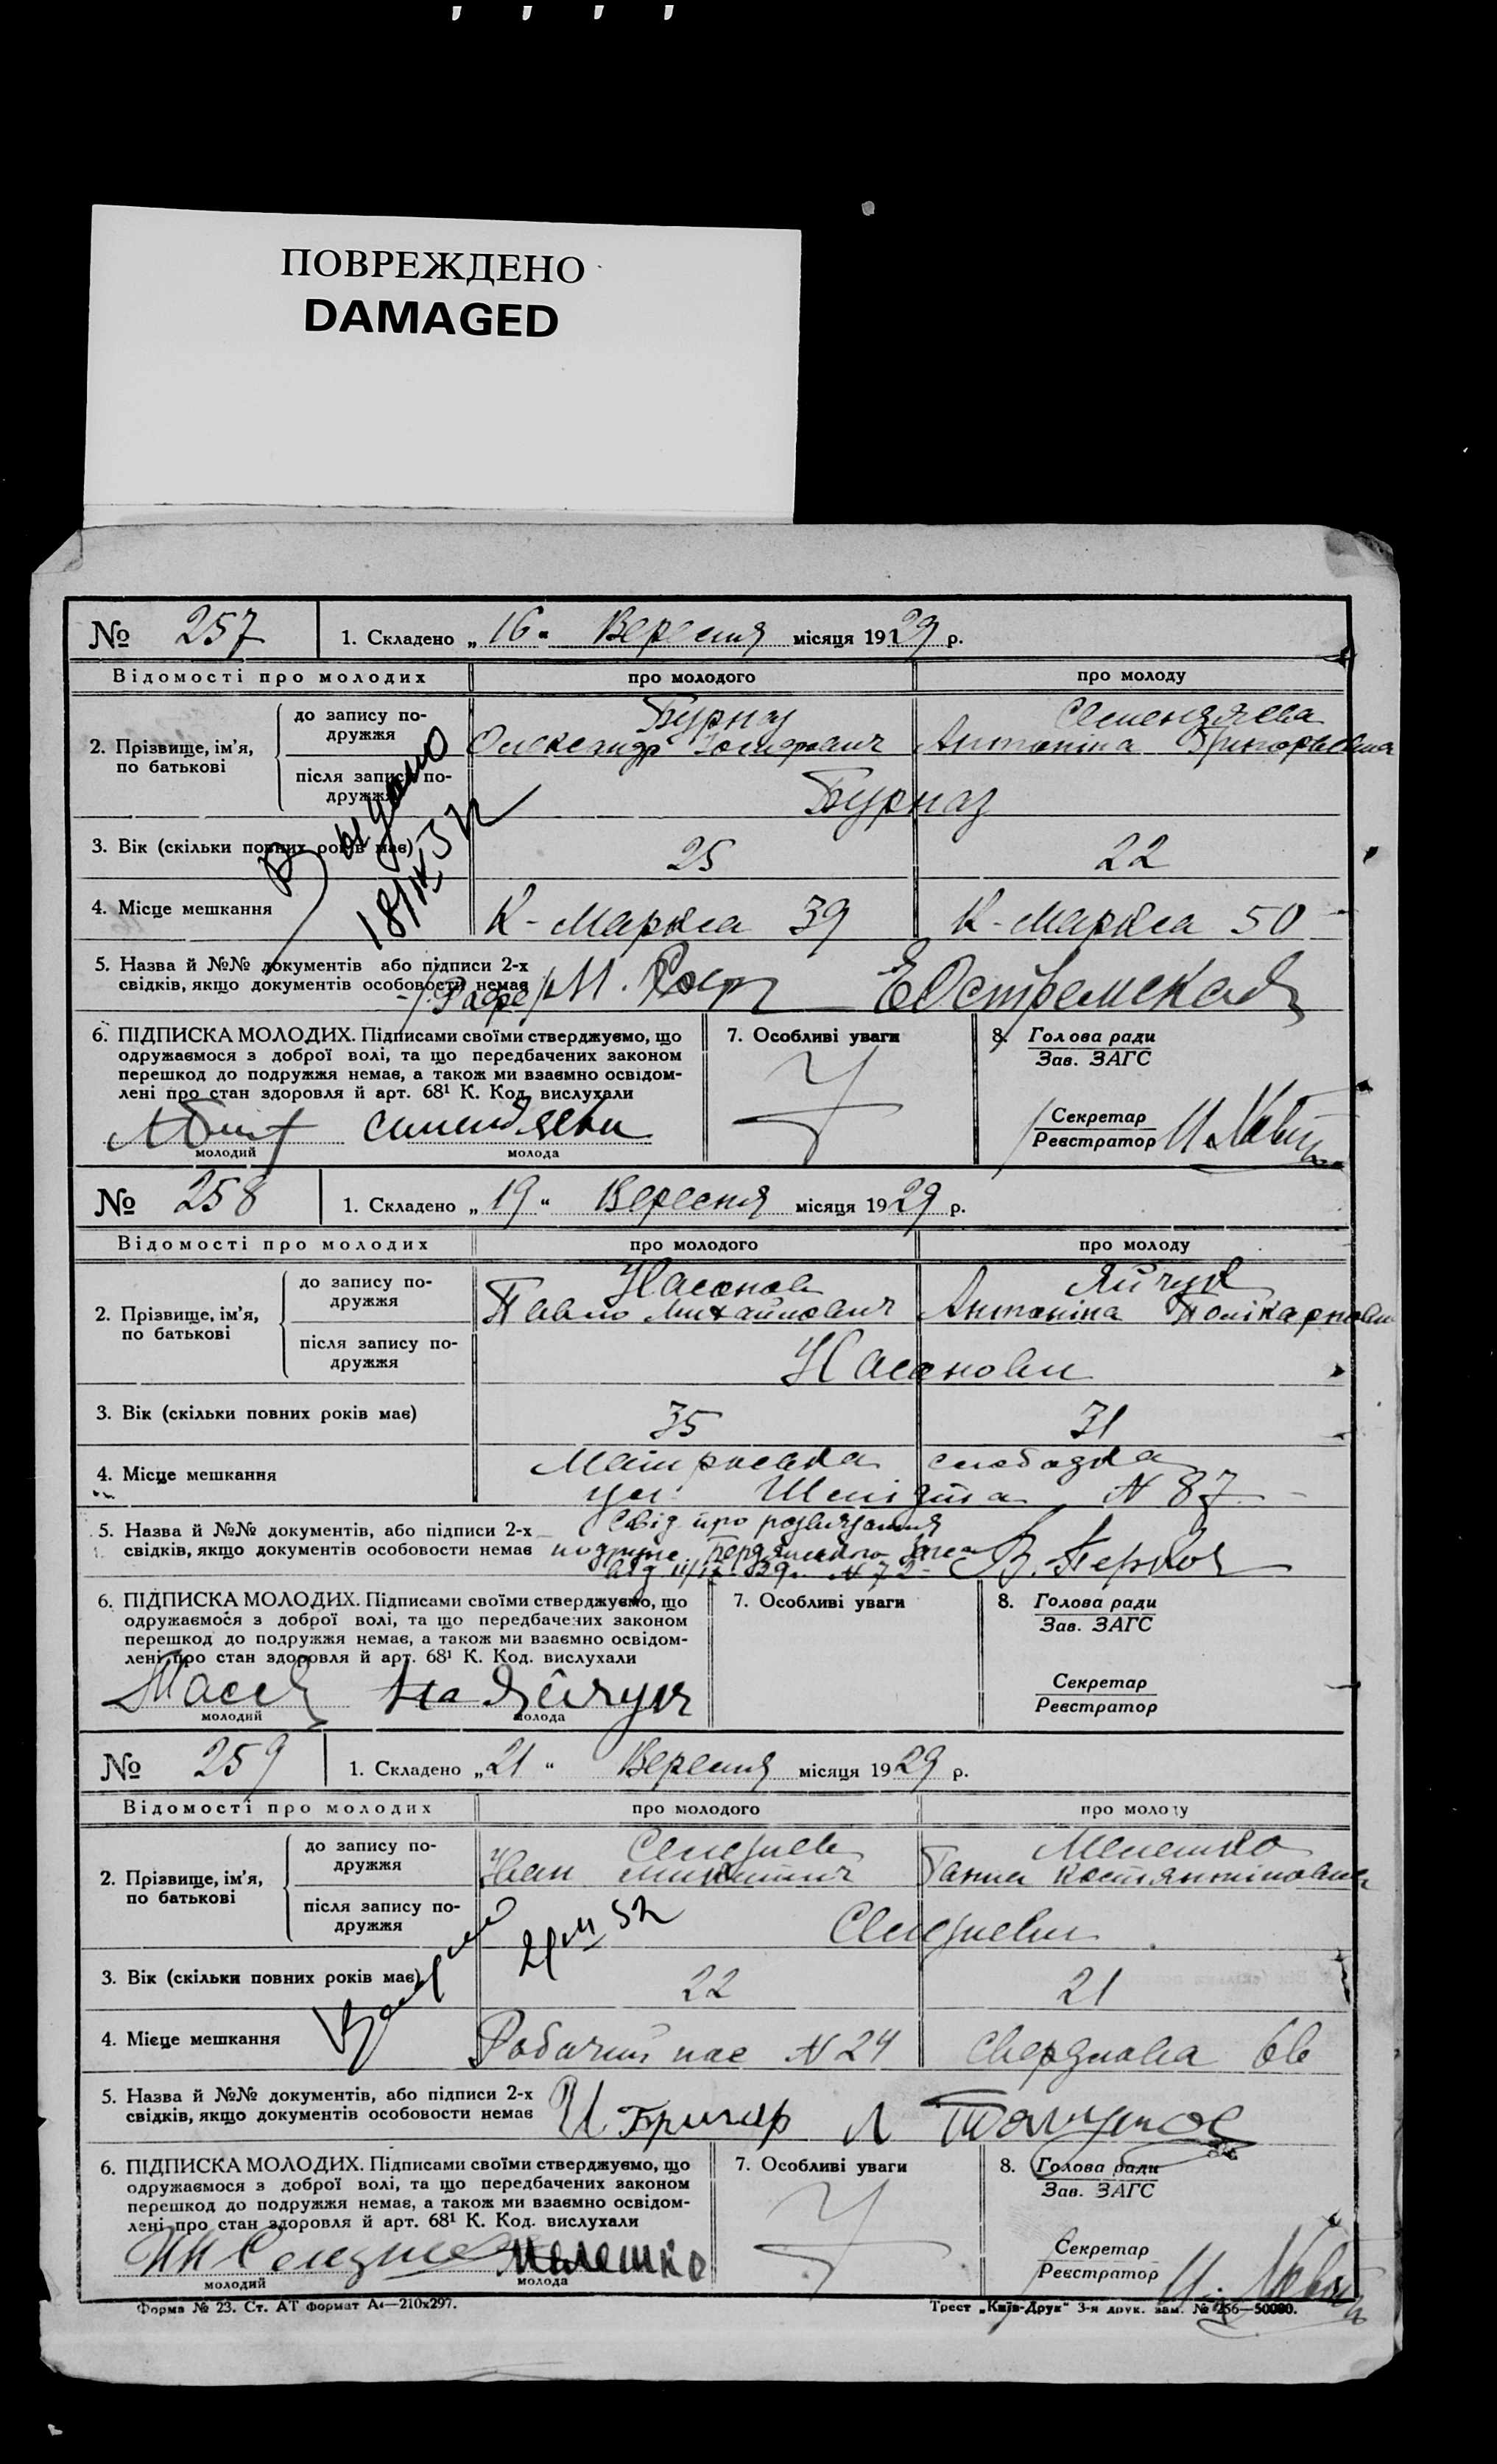 ПОВРЕЖДЕНО
DAMAGED
№ 257 1. Складено „16“ Вересня місяця 1929 р.
Відомості про молодих про молодого про молоду
2. Прізвище, ім’я, по батькові
до запису подружжя
Бурназ Семендяєва
Олександр Іосифович Антоніна Григорьевна
після запису подружжя
Бурназ
3. Вік (скільки повних років має) 25 22
Видано
18/IX 32
4. Місце мешкання К-Маркса 39 К-Маркса 50
5. Назва й №№ документів або підписи 2-х
свідків, якщо документів особовости немає
М. ЕОстремская
6. ПІДПИСКА МОЛОДИХ. Підписами своїми стверджуємо, що
одружаємося з доброї волі, та що передбачених законом
перешкод до подружжя немає, а також ми взаємно освідом-
лені про стан здоровля й арт. 68¹ К. Код. вислухали
молодий молода
7. Особливі уваги
8. Голова ради
Зав. ЗАГС
Секретар
Реєстратор
№ 258 1. Складено „19“ Вересня місяця 1929 р.
Відомості про молодих про молодого про молоду
2. Прізвище, ім’я, по батькові
до запису подружжя
Насонов Яйчук
Павло Михайлович Антоніна Полікарповна
після запису подружжя
Насонови
3. Вік (скільки повних років має) 35 31
4. Місце мешкання Матроська слободка
ул. Шмідта N 87
5. Назва й №№ документів, або підписи 2-х
свідків, якщо документів особовости немає
Свід про розвязання
подружж Бердянського Загса
від 11/IX 29 N 72
6. ПІДПИСКА МОЛОДИХ. Підписами своїми стверджуємо, що
одружаємося з доброї волі, та що передбачених законом
перешкод до подружжя немає, а також ми взаємно освідом-
лені про стан здоровля й арт. 68¹ К. Код. вислухали
Яйчук
молодий молода
7. Особливі уваги
8. Голова ради
Зав. ЗАГС
Секретар
Реєстратор
№ 259 1. Складено „21“ Вересня місяця 1929 р.
Відомості про молодих про молодого про молоду
2. Прізвище, ім’я, по батькові
до запису подружжя
Селезнев Мелешко
Іван Микитич Ганна Костянтіновна
після запису подружжя
Селезневи
3. Вік (скільки повних років має) 22 21
4. Місце мешкання Робочий пос N 24 Свердлова 66
5. Назва й №№ документів, або підписи 2-х
свідків, якщо документів особовости немає
6. ПІДПИСКА МОЛОДИХ. Підписами своїми стверджуємо, що
одружаємося з доброї волі, та що передбачених законом
перешкод до подружжя немає, а також ми взаємно освідом-
лені про стан здоровля й арт. 68¹ К. Код. вислухали
Мелешко
молодий молода
7. Особливі уваги
8. Голова ради
Зав. ЗАГС
Секретар
Реєстратор
Форма № 23. Ст. АТ формат А4—210x297.
Трест „Київ-Друк“ 3-я друк. зам. № 256—50000.